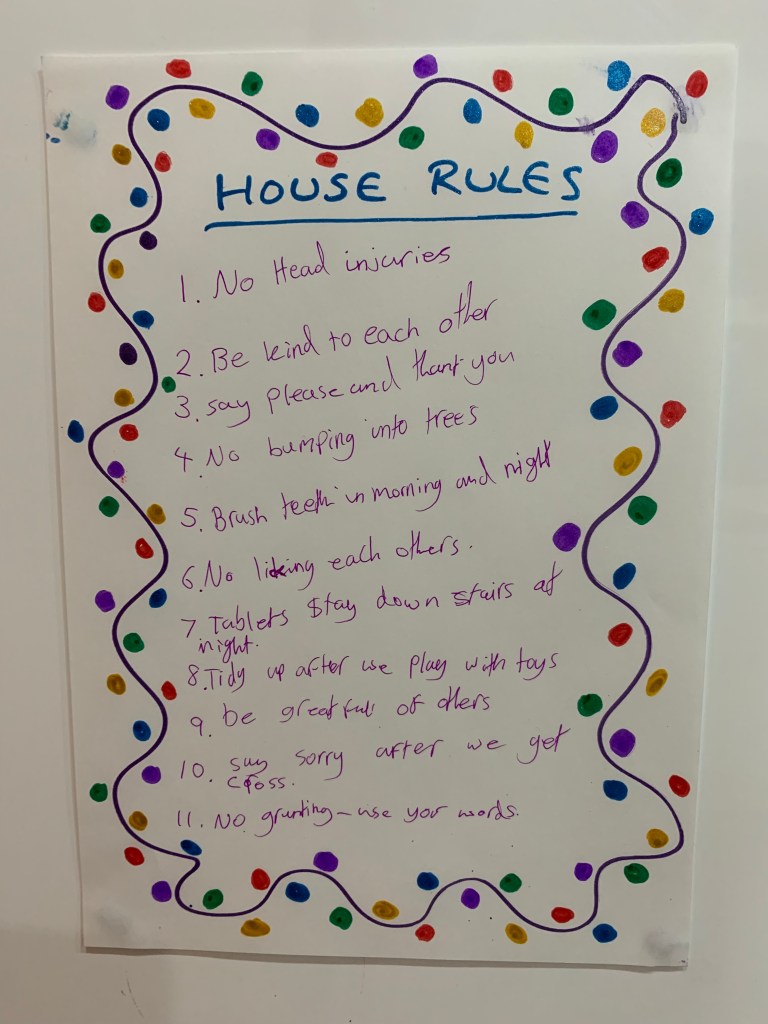 HOUSE RULES
1. No Head injuries
2. Be kind to each other
3. say please and thank you
4. No bumping into trees
5. Brush teeth in morning and night
6. No licking each others.
7. Tablets stay down stairs at
night.
8. Tidy up after we play with toys
9. be greatfull of others
10. say sorry after we get
cross.
11. No grunting - use your words.